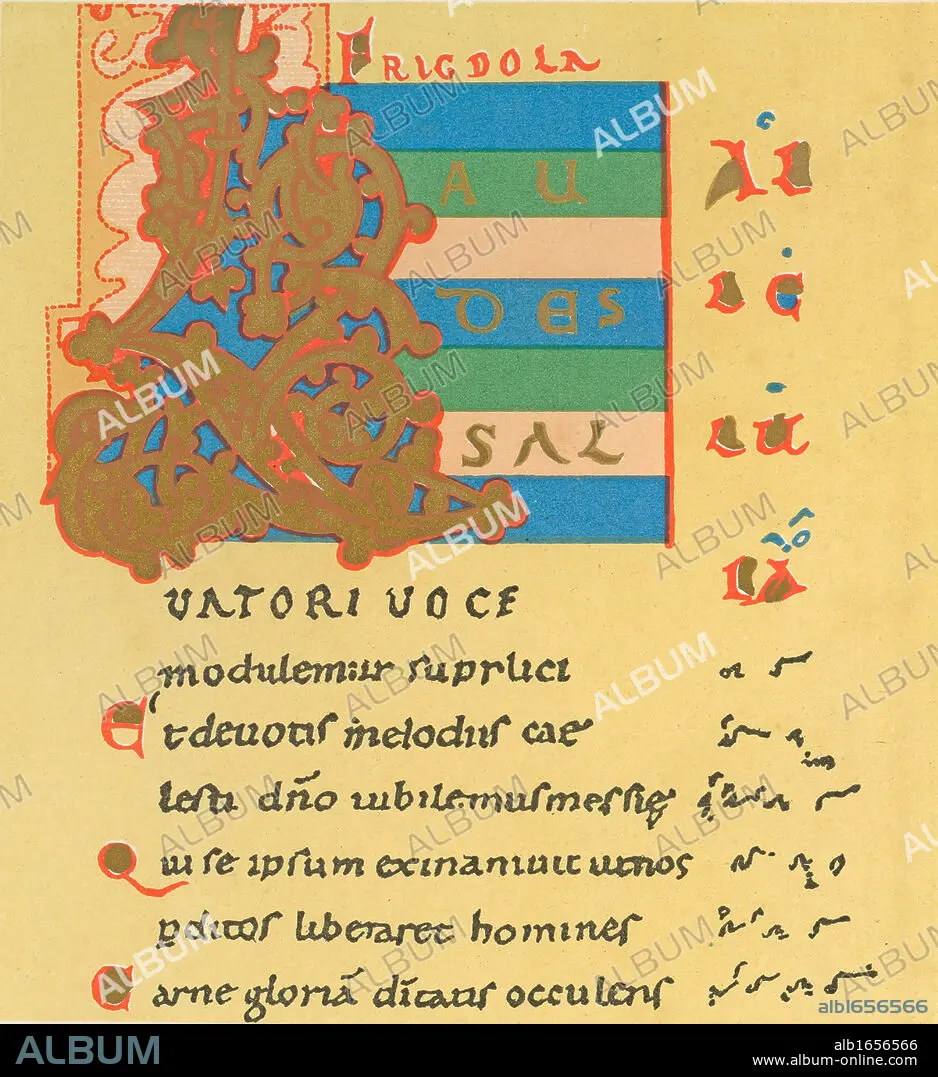 FRIGDOLA
AL
L AU
LE
DES
LU
SAL
IA
UATORI UOCE
modulemur supplici
Et deuotis melodiis cae
lesti dño iubilemus messię
im
Qui se ipsum exinaniuit ut nos
pditos liberaret homines
Carne gloriā dītatis occulens
alb1656566
ALBUM
alb1656566
www.album-online.com